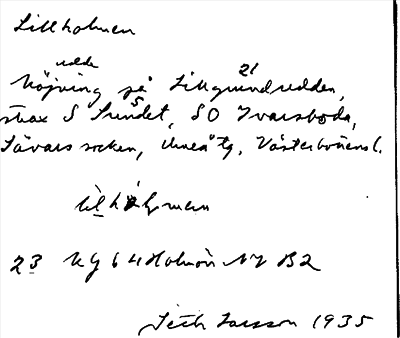 Lillholmen
udde
Höjning på Sikgrundudden,
21
strax S Sundet, SO Ivarsboda,
5
Sävars socken, Umeå tg, Västerbottens l.
lilhålmen
23 Kg 64 Holmön NV B2
Seth Larsson 1935